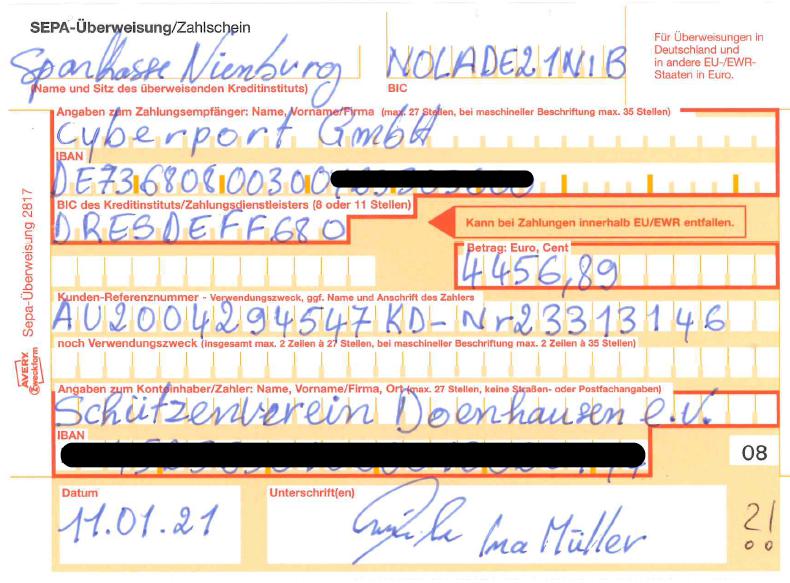 SEPA-Überweisung/Zahlschein
Für Überweisungen in
Deutschland und
in andere EU-/EWR-
Staaten in Euro.
Sparkasse Nienburg NOLADE21NIB
(Name und Sitz des überweisenden Kreditinstituts) BIC
Angaben zum Zahlungsempfänger: Name, Vorname/Firma (max. 27 Stellen, bei maschineller Beschriftung max. 35 Stellen)
Cyberport GmbH
IBAN
DE73680800300
BIC des Kreditinstituts/Zahlungsdienstleisters (8 oder 11 Stellen)
DRESDEFF680
Kann bei Zahlungen innerhalb EU/EWR entfallen.
Betrag: Euro, Cent
4456,89
Kunden-Referenznummer - Verwendungszweck, ggf. Name und Anschrift des Zahlers
AU2004294547 KD-Nr23313146
noch Verwendungszweck (insgesamt max. 2 Zeilen à 27 Stellen, bei maschineller Beschriftung max. 2 Zeilen à 35 Stellen)
Angaben zum Kontoinhaber/Zahler: Name, Vorname/Firma, Ort (max. 27 Stellen, keine Straßen- oder Postfachangaben)
Schützenverein Doenhausen e.V.
IBAN
08
Datum Unterschrift(en)
11.01.21 Ina Müller
Sepa-Überweisung 2817
AVERY
Zweckform